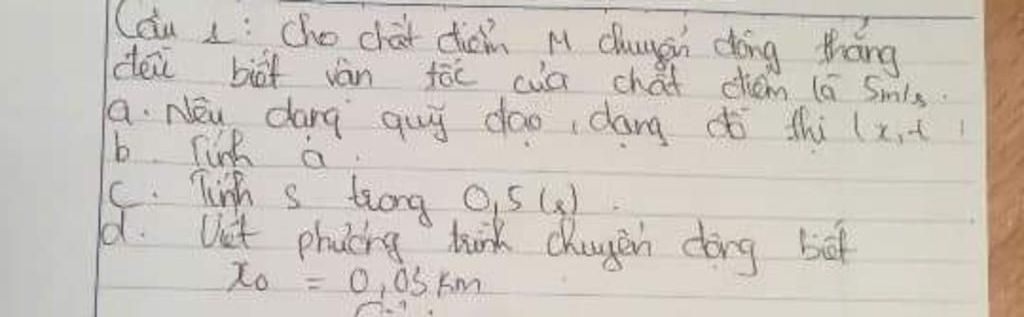 Câu 1: Cho chất điểm M chuyển động thẳng
đều biết vận tốc của chất điểm là 5m/s.
a. Nêu dạng quỹ đạo, dạng đồ thị (x,t)
b. Tính a.
c. Tính s trong 0,5(s).
d. Viết phương trình chuyển động biết
x₀ = 0,05 km